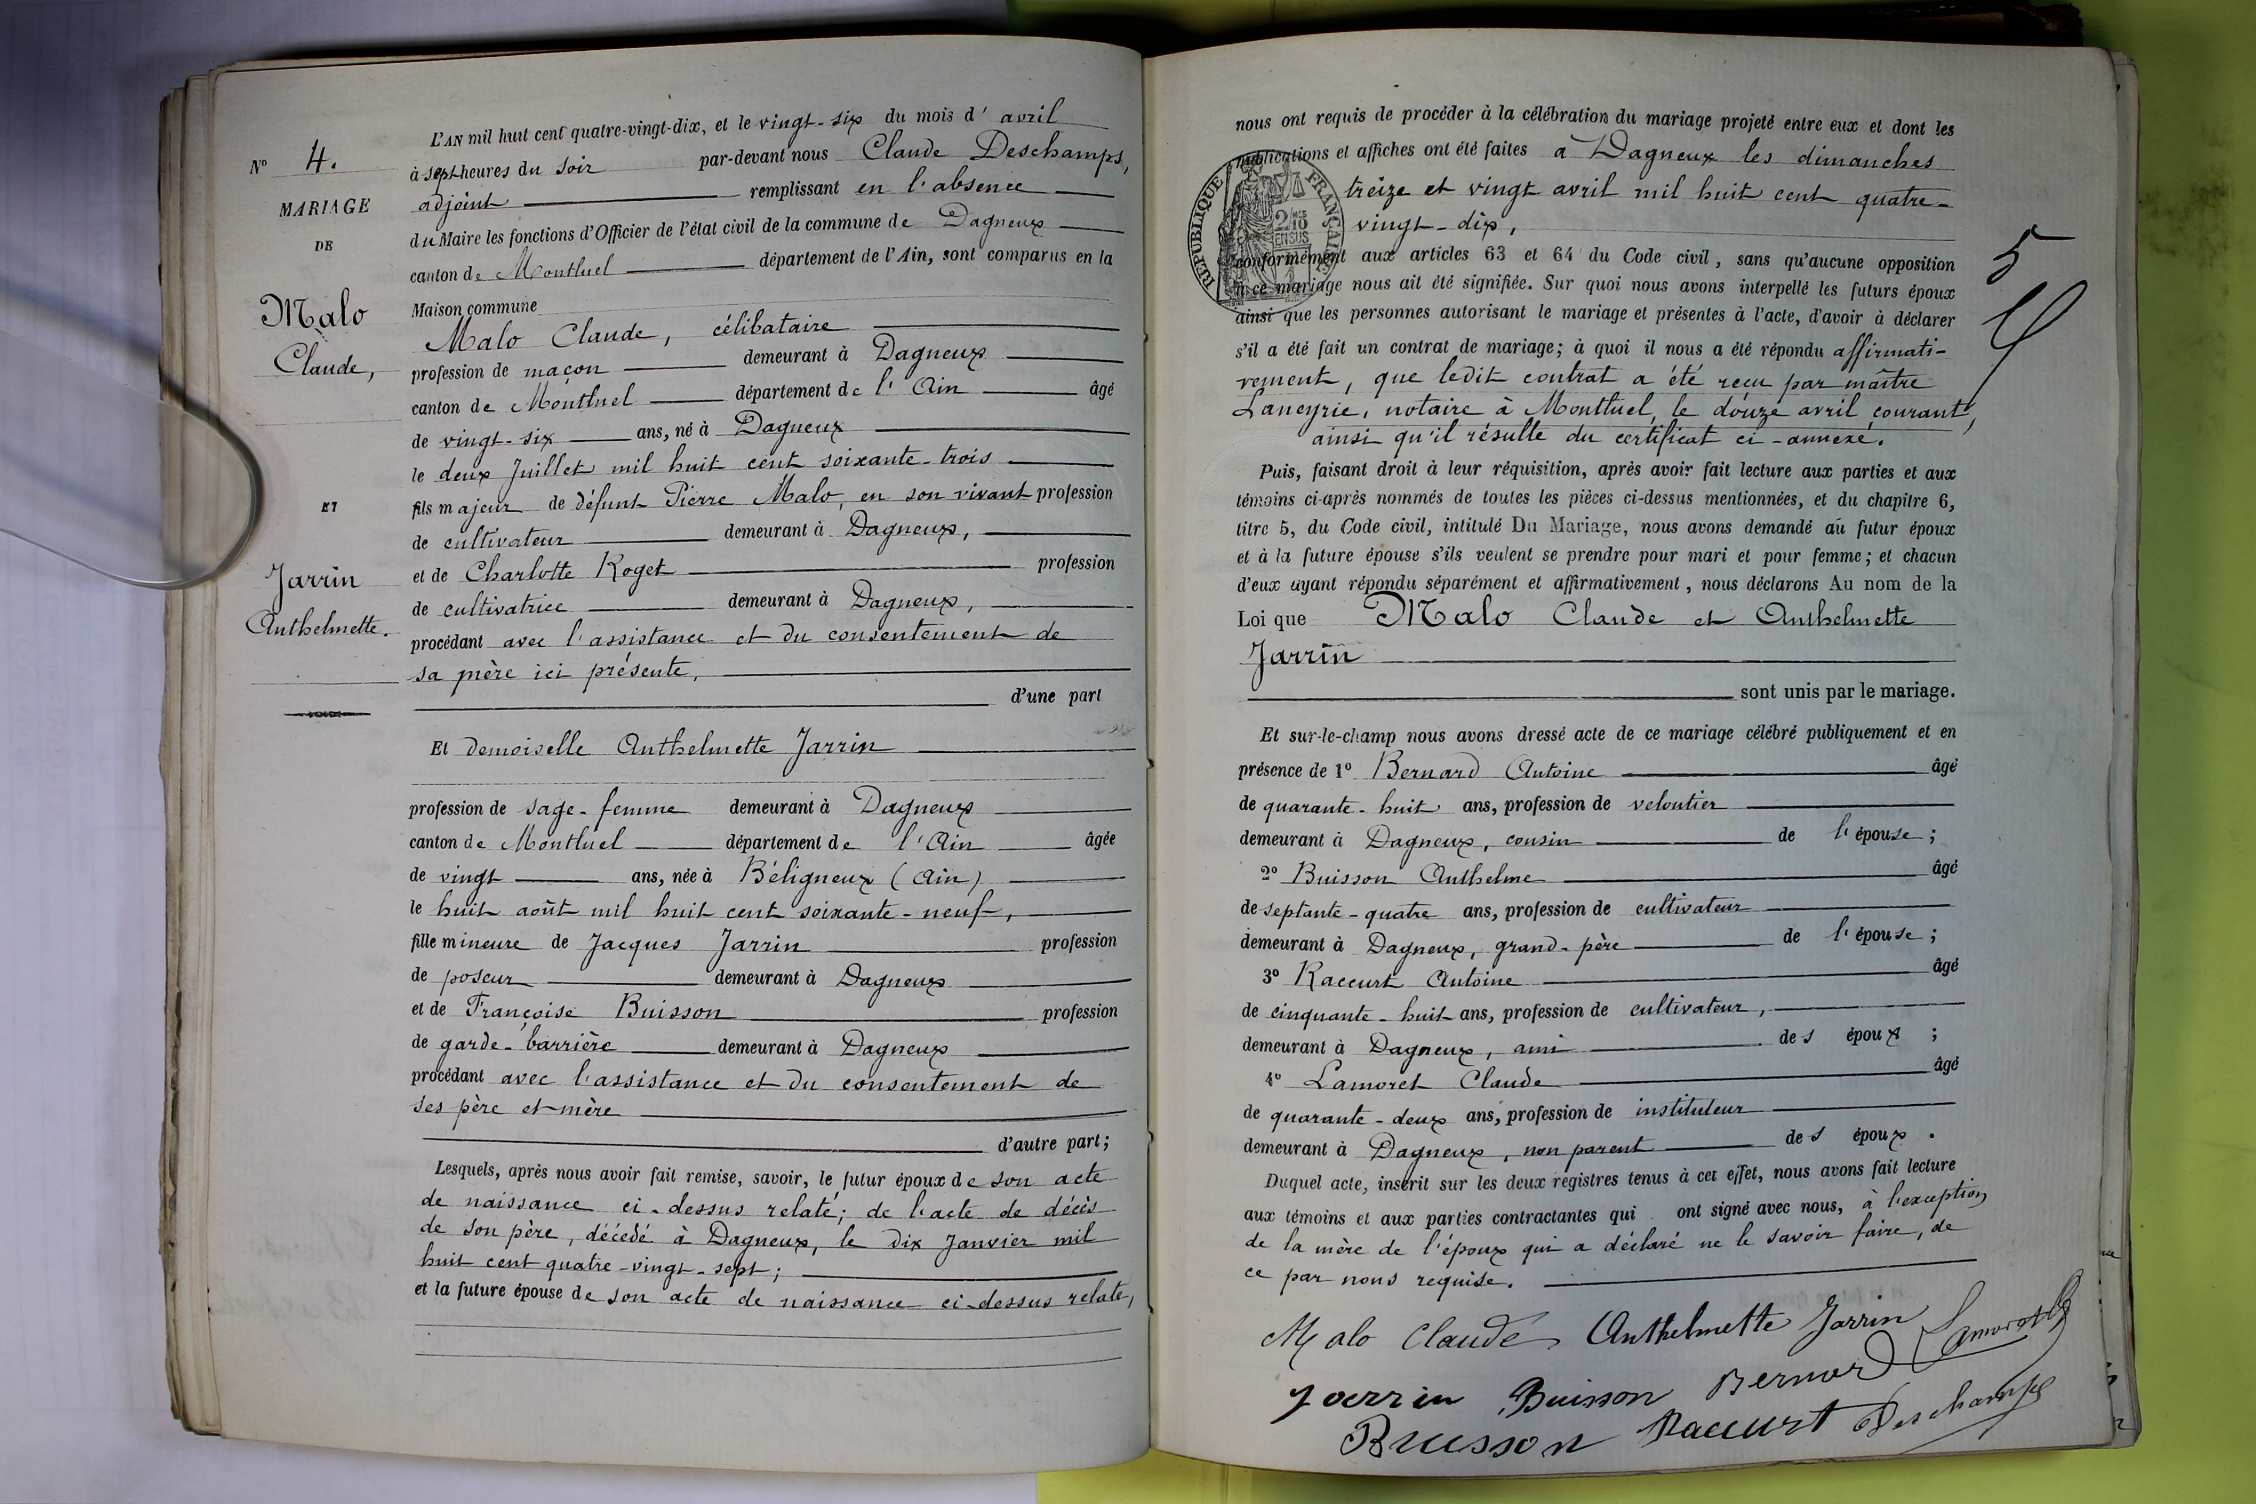 N° 4.
MARIAGE
DE
Malo
Claude,
ET
Jarrin
Anthelmette.
L'AN mil huit cent quatre-vingt-dix, et le vingt-six du mois d'avril
à sept heures du soir par-devant nous Claude Deschamps,
adjoint remplissant en l'absence
du Maire les fonctions d'Officier de l'état civil de la commune de Dagneux
canton de Montluel département de l'Ain, sont comparus en la
Maison commune
Malo Claude, célibataire
profession de maçon demeurant à Dagneux
canton de Montluel département de l'Ain âgé
de vingt-six ans, né à Dagneux
le deux Juillet mil huit cent soixante-trois
fils majeur de défunt Pierre Malo, en son vivant profession
de cultivateur demeurant à Dagneux,
et de Charlotte Roget profession
de cultivatrice demeurant à Dagneux,
procédant avec l'assistance et du consentement de
sa mère ici présente,
d'une part
Et demoiselle Anthelmette Jarrin
profession de sage-femme demeurant à Dagneux
canton de Montluel département de l'Ain âgée
de vingt ans, née à Béligneux (Ain)
le huit août mil huit cent soixante-neuf,
fille mineure de Jacques Jarrin profession
de poseur demeurant à Dagneux
et de Françoise Buisson profession
de garde-barrière demeurant à Dagneux
procédant avec l'assistance et du consentement de
ses père et mère
d'autre part;
Lesquels, après nous avoir fait remise, savoir, le futur époux de son acte
de naissance ci-dessus relaté; de l'acte de décès
de son père, décédé à Dagneux, le dix Janvier mil
huit cent quatre-vingt-sept;
et la future épouse de son acte de naissance ci-dessus relaté,
nous ont requis de procéder à la célébration du mariage projeté entre eux et dont les
publications et affiches ont été faites à Dagneux les dimanches
treize et vingt avril mil huit cent quatre-
vingt-dix,
RÉPUBLIQUE FRANÇAISE
2/10 EN SUS
conformément aux articles 63 et 64 du Code civil, sans qu'aucune opposition
à ce mariage nous ait été signifiée. Sur quoi nous avons interpellé les futurs époux
ainsi que les personnes autorisant le mariage et présentes à l'acte, d'avoir à déclarer
s'il a été fait un contrat de mariage; à quoi il nous a été répondu affirmati-
vement, que ledit contrat a été reçu par maître
Laneyrie, notaire à Montluel, le douze avril courant,
ainsi qu'il résulte du certificat ci-annexé.
Puis, faisant droit à leur réquisition, après avoir fait lecture aux parties et aux
témoins ci-après nommés de toutes les pièces ci-dessus mentionnées, et du chapitre 6,
titre 5, du Code civil, intitulé Du Mariage, nous avons demandé au futur époux
et à la future épouse s'ils veulent se prendre pour mari et pour femme; et chacun
d'eux ayant répondu séparément et affirmativement, nous déclarons Au nom de la
Loi que Malo Claude et Anthelmette
Jarrin
sont unis par le mariage.
Et sur-le-champ nous avons dressé acte de ce mariage célébré publiquement et en
présence de 1° Bernard Antoine âgé
de quarante-huit ans, profession de veloutier
demeurant à Dagneux, cousin de l'épouse;
2° Buisson Anthelme âgé
de septante-quatre ans, profession de cultivateur
demeurant à Dagneux, grand-père de l'épouse;
3° Raccurt Antoine âgé
de cinquante-huit ans, profession de cultivateur,
demeurant à Dagneux, ami des époux;
4° Lamoret Claude âgé
de quarante-deux ans, profession de instituteur
demeurant à Dagneux, non parent des époux.
Duquel acte, inscrit sur les deux registres tenus à cet effet, nous avons fait lecture
aux témoins et aux parties contractantes qui ont signé avec nous, à l'exception
de la mère de l'époux qui a déclaré ne le savoir faire, de
ce par nous requise.
Malo Claude Anthelmette Jarrin Lamoret
Jarrin Buisson Bernard
Buisson Raccurt Deschamps
5